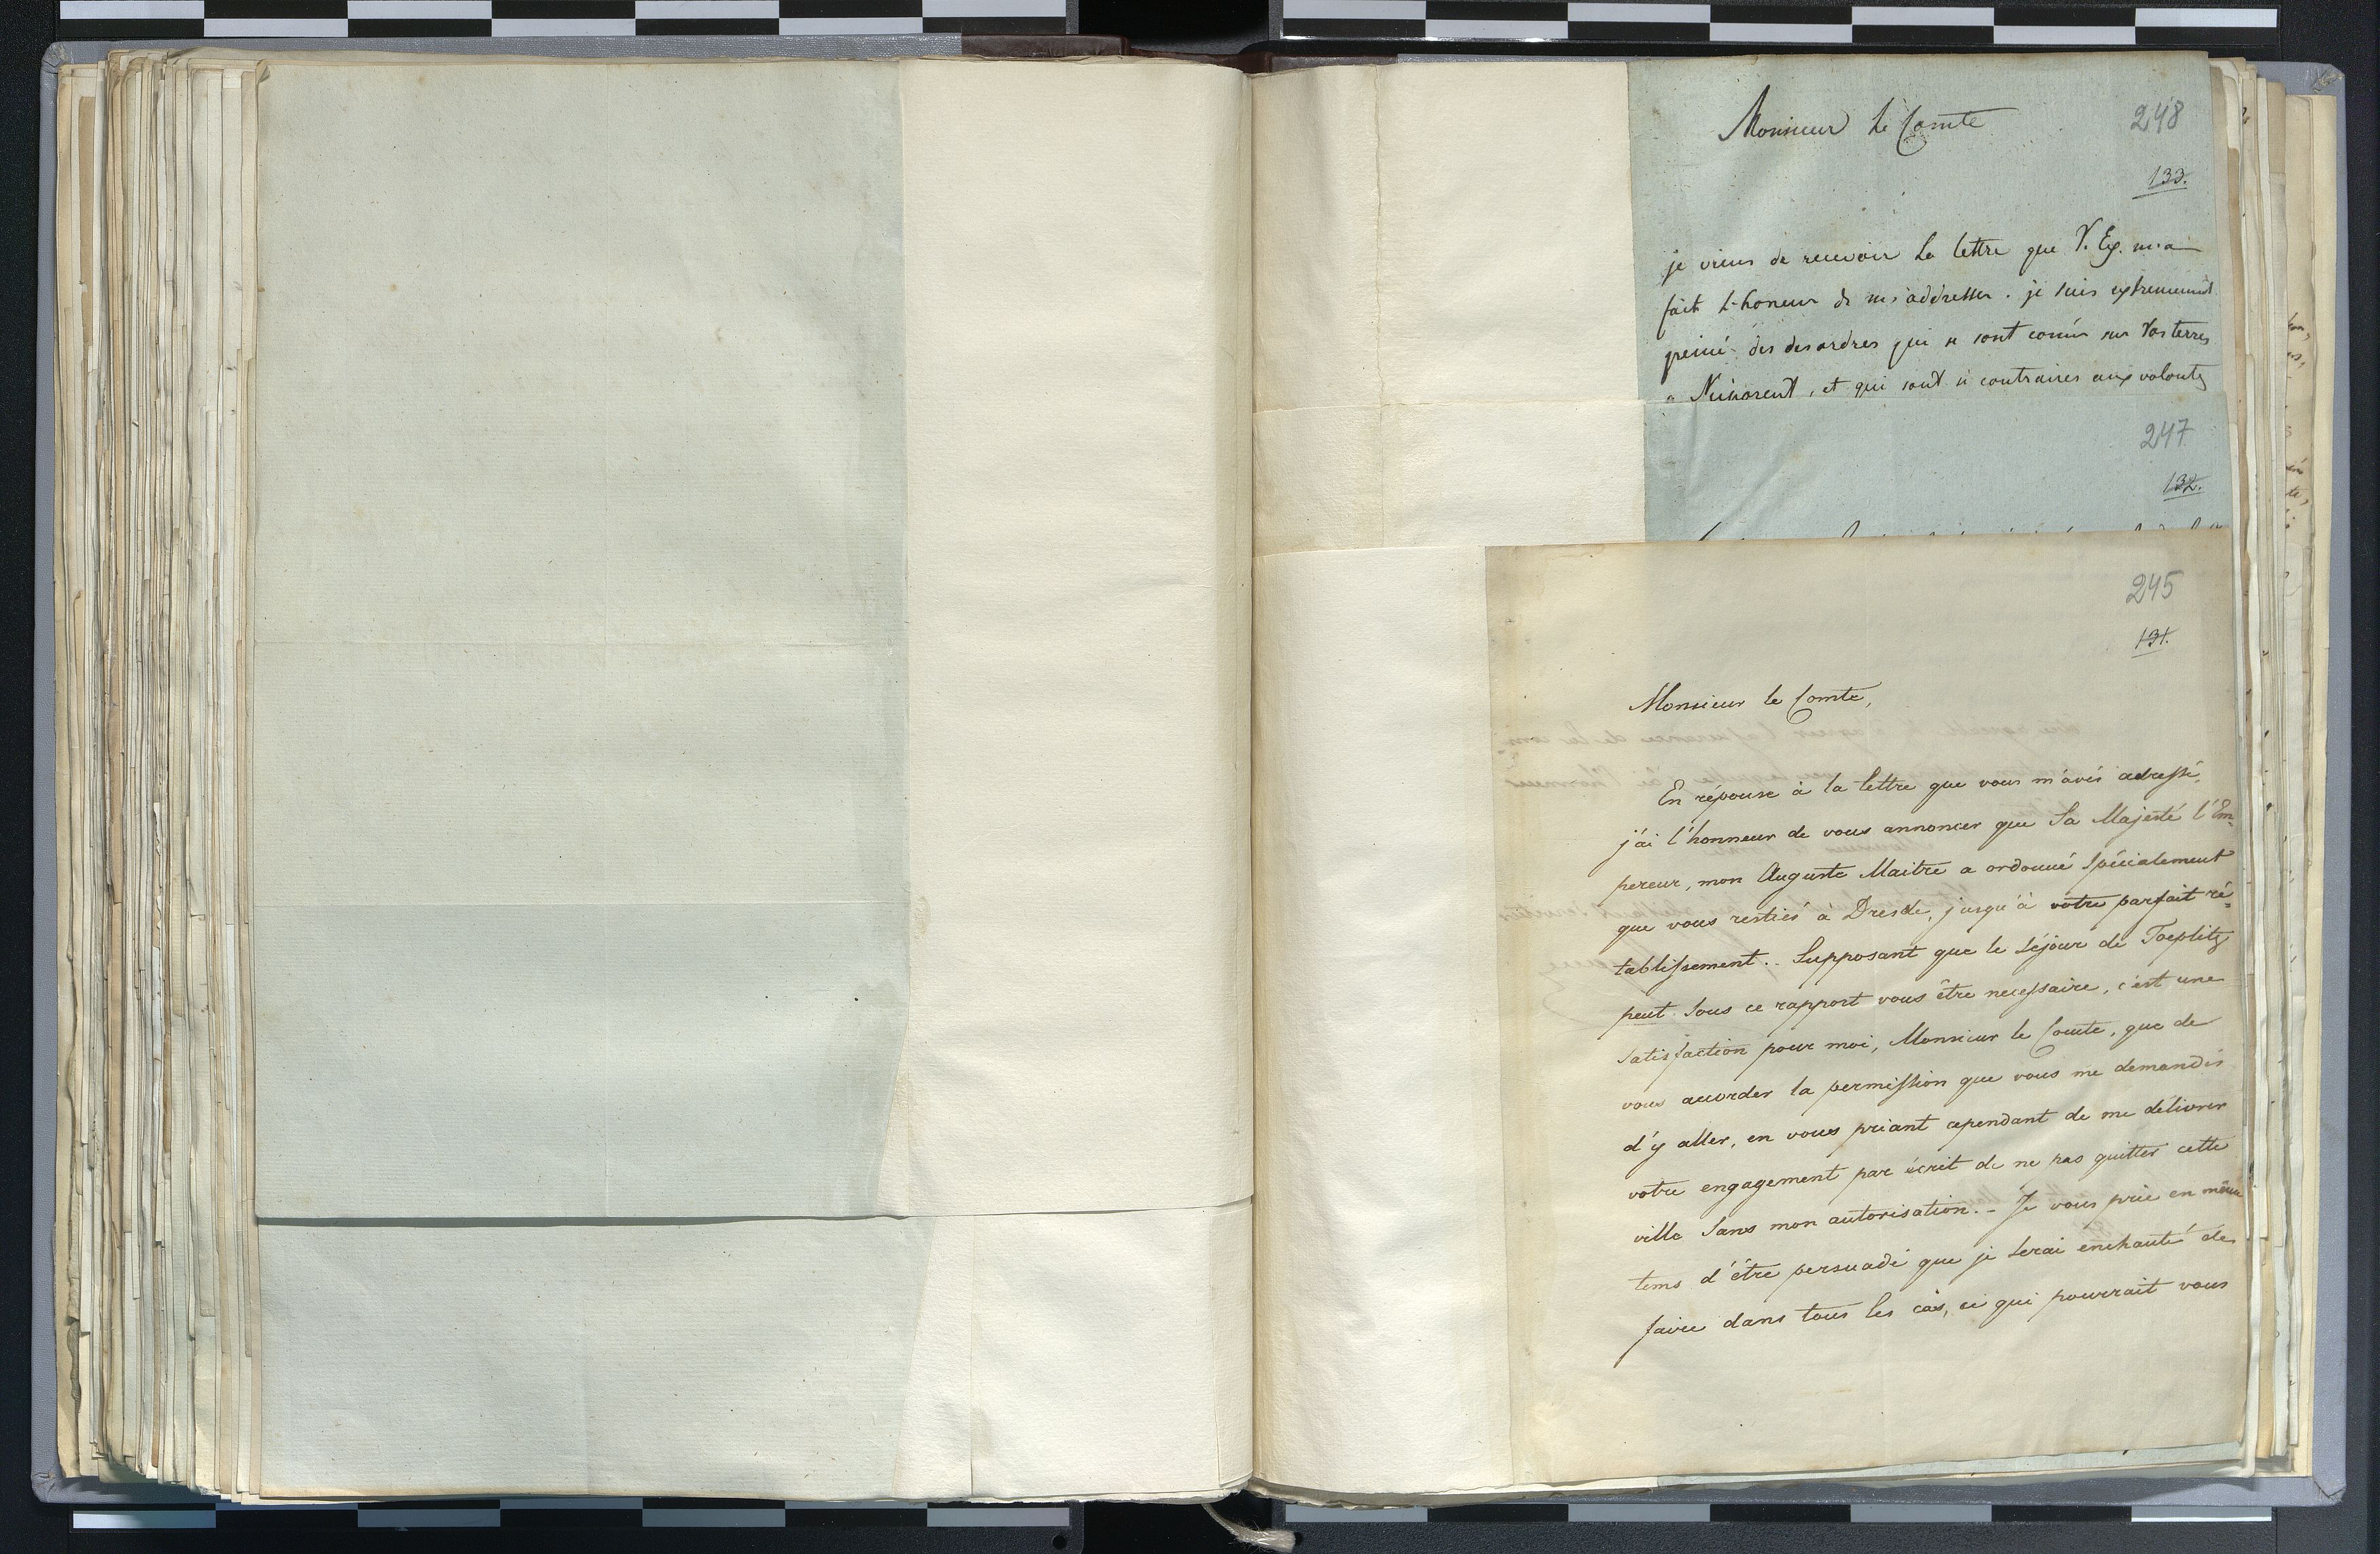 Monsieur le Comte
248
133.
je viens de recevoir la lettre que V. Ex. m'a
fait l'honeur de m'addresser. je suis extremement
peiné des desordres qui se sont comis sur Vos terres
a et qui sont si contraires aux volontes
247
132.
245
131.
Monsieur le Comte,
En réponse à la lettre que vous m'avés adressé,
j'ai l'honneur de vous annoncer que Sa Majesté l'Em-
pereur, mon Auguste Maitre a ordonné spécialement
que vous restiés à Dresde, jusqu'à votre parfait ré-
tablissement. Supposant que le séjour de Toeplitz
peut sous ce rapport vous être necessaire, c'est une
satisfaction pour moi, Monsieur le Comte, que de
vous accorder la permission que vous me demandés
d'y aller, en vous priant cependant de me délivrer
votre engagement par écrit de ne pas quitter cette
ville sans mon autorisation. - Je vous prie en même
tems d'être persuadé que je serai enchanté de
faire dans tous les cas, ce qui pourrait vous